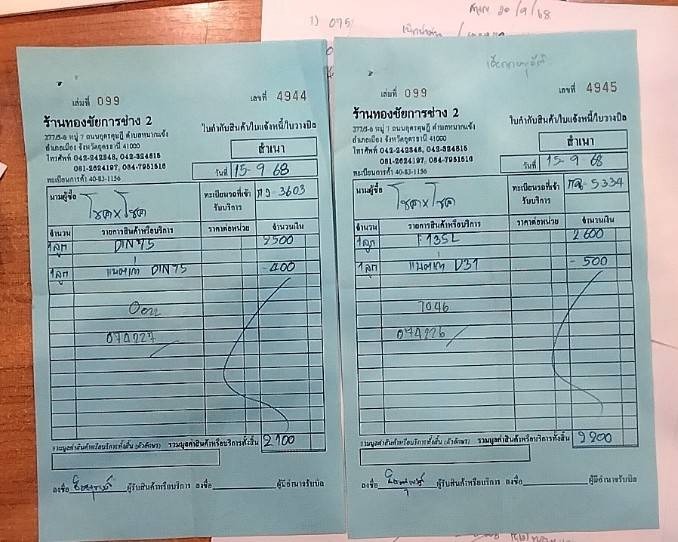 1) 075
20/9/68
เล่มที่ 099
เลขที่ 4944
ร้านทองชัยการช่าง 2
ใบกำกับสินค้า/ใบแจ้งหนี้/ใบวางบิล
377/5-6 หมู่ 7 ถนนอุดรดุษฎี ตำบลหมากแข้ง
อำเภอเมือง จังหวัดอุดรธานี 41000
สำเนา
โทรศัพท์ 042-242348, 042-324815
081-2624197, 084-7951516
วันที่ 15-9 68
ทะเบียนการค้า 40-83-1156
นามผู้ซื้อ โชค x โชค
ทะเบียนรถที่เข้ารับบริการ 3603
จำนวน รายการสินค้าหรือบริการ ราคาต่อหน่วย จำนวนเงิน
1 ลูก DIN 75 2500
1 ลูก แบตเก่า DIN 75 -400
074227
รวมมูลค่าสินค้าหรือบริการทั้งสิ้น (ตัวอักษร) รวมมูลค่าสินค้าหรือบริการทั้งสิ้น 2100
ลงชื่อ ผู้รับสินค้าหรือบริการ ลงชื่อ ผู้มีอำนาจรับบิล
เล่มที่ 099
เลขที่ 4945
ร้านทองชัยการช่าง 2
ใบกำกับสินค้า/ใบแจ้งหนี้/ใบวางบิล
377/5-6 หมู่ 7 ถนนอุดรดุษฎี ตำบลหมากแข้ง
อำเภอเมือง จังหวัดอุดรธานี 41000
สำเนา
โทรศัพท์ 042-242348, 042-324815
081-2624197, 084-7951516
วันที่ 15-9 68
ทะเบียนการค้า 40-83-1156
นามผู้ซื้อ โชค x โชค
ทะเบียนรถที่เข้ารับบริการ 5334
จำนวน รายการสินค้าหรือบริการ ราคาต่อหน่วย จำนวนเงิน
1 ลูก 135L 2600
1 ลูก แบตเก่า D31 - 500
7046
074226
รวมมูลค่าสินค้าหรือบริการทั้งสิ้น (ตัวอักษร) รวมมูลค่าสินค้าหรือบริการทั้งสิ้น
ลงชื่อ ผู้รับสินค้าหรือบริการ ลงชื่อ ผู้มีอำนาจรับบิล